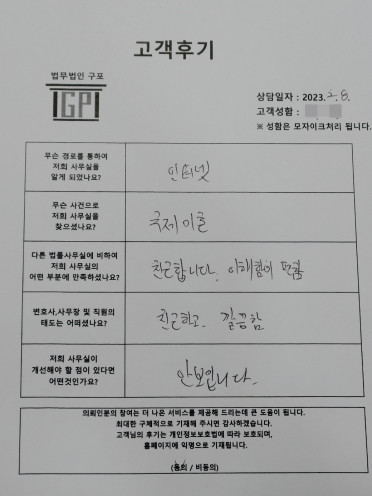 고객후기
법무법인 구포
IGPI
상담일자 : 2023. 2. 8.
고객성함 :
※ 성함은 모자이크처리 됩니다.
무슨 경로를 통하여
저희 사무실을
알게 되었나요?
인터넷
무슨 사건으로
저희 사무실을
찾으셨나요?
국제이혼
다른 법률사무실에 비하여
저희 사무실의
어떤 부분에 만족하셨나요?
친근합니다. 이해함이 편함
변호사,사무장 및 직원의
태도는 어떠셨나요?
친근하고. 깔끔함
저희 사무실이
개선해야 할 점이 있다면
어떤것인가요?
안보입니다.
의뢰인분의 참여는 더 나은 서비스를 제공해 드리는데 큰 도움이 됩니다.
최대한 구체적으로 기재해 주시면 감사하겠습니다.
고객님의 후기는 개인정보보호법에 따라 보호되며,
홈페이지에 익명으로 기재됩니다.
(동의 / 비동의)